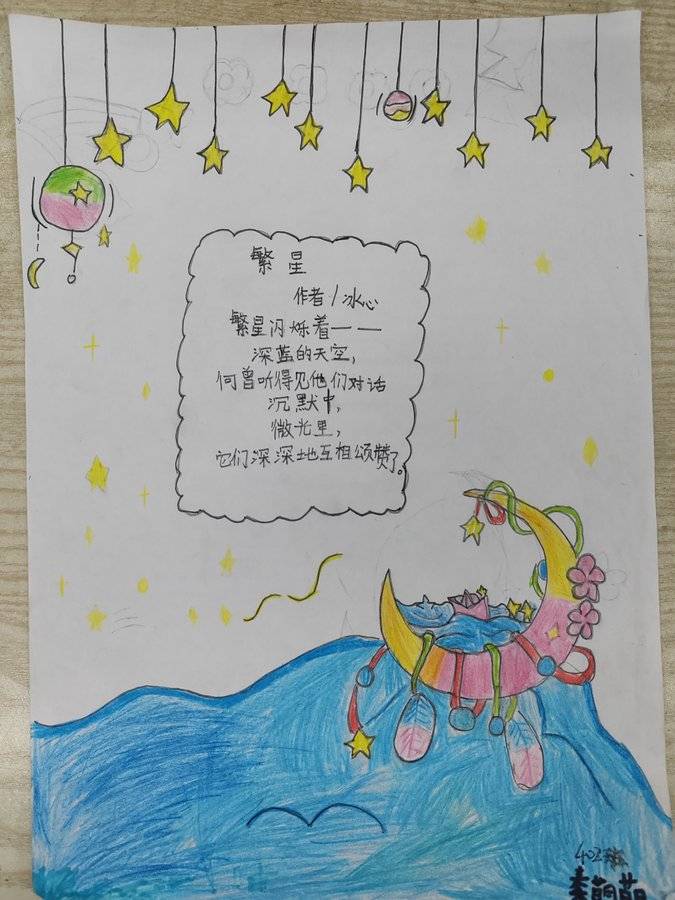 繁星
作者/冰心
繁星闪烁着——
深蓝的天空，
何曾听得见他们对话
沉默中，
微光里，
它们深深地互相颂赞了。
402班
秦萌萌